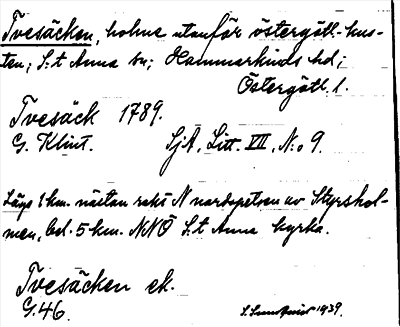 Tvesäcken, holme utanför östergötl.-kus-
ten; S:t Anna sn; Hammarkinds hd;
Östergötl. l.
Tvesäck 1789.
G. Klint. SjA, Litt. VII, N:o 9.
Läge 1 km. nästan rakt N nordspetsen av Styrshol-
men, bel. 5 km. NNÖ S:t Anna kyrka.
Tvesäcken ek.
G.46. 1939.